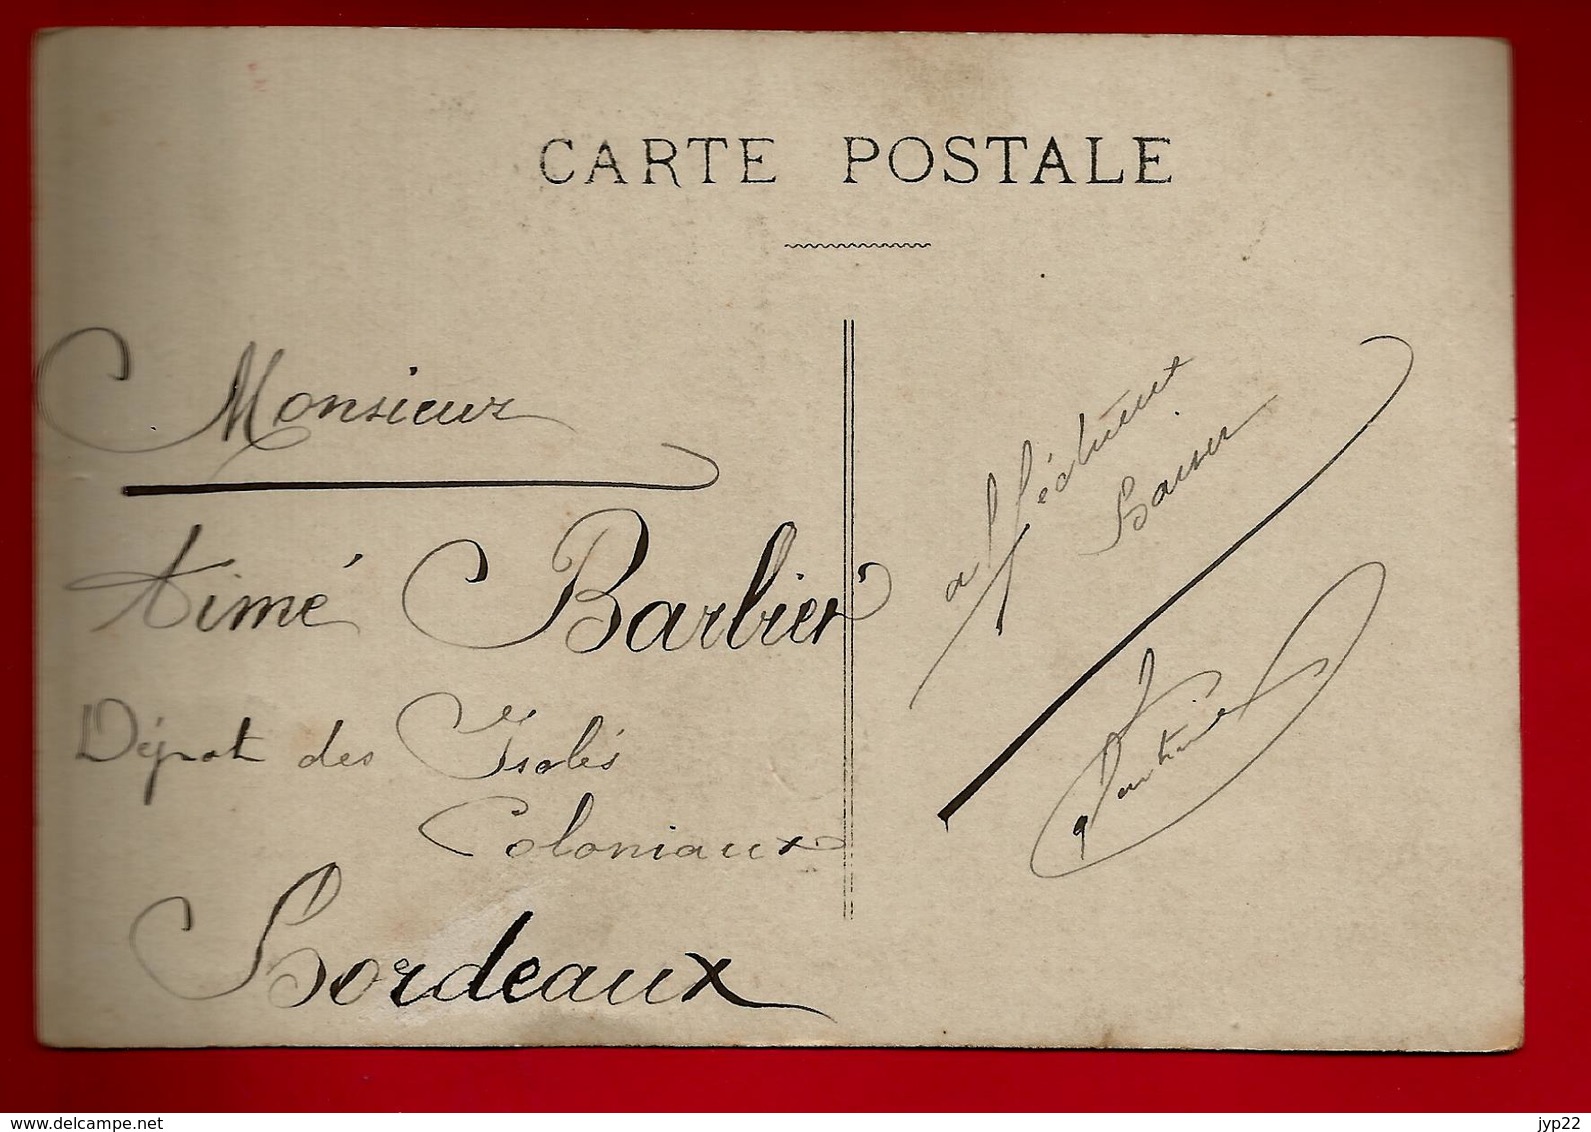 CARTE POSTALE
Monsieur
Aimé Barbier
Dépot des Isolés
Coloniaux
Bordeaux
affectueux
Baiser
www.delcampe.net
jyp22